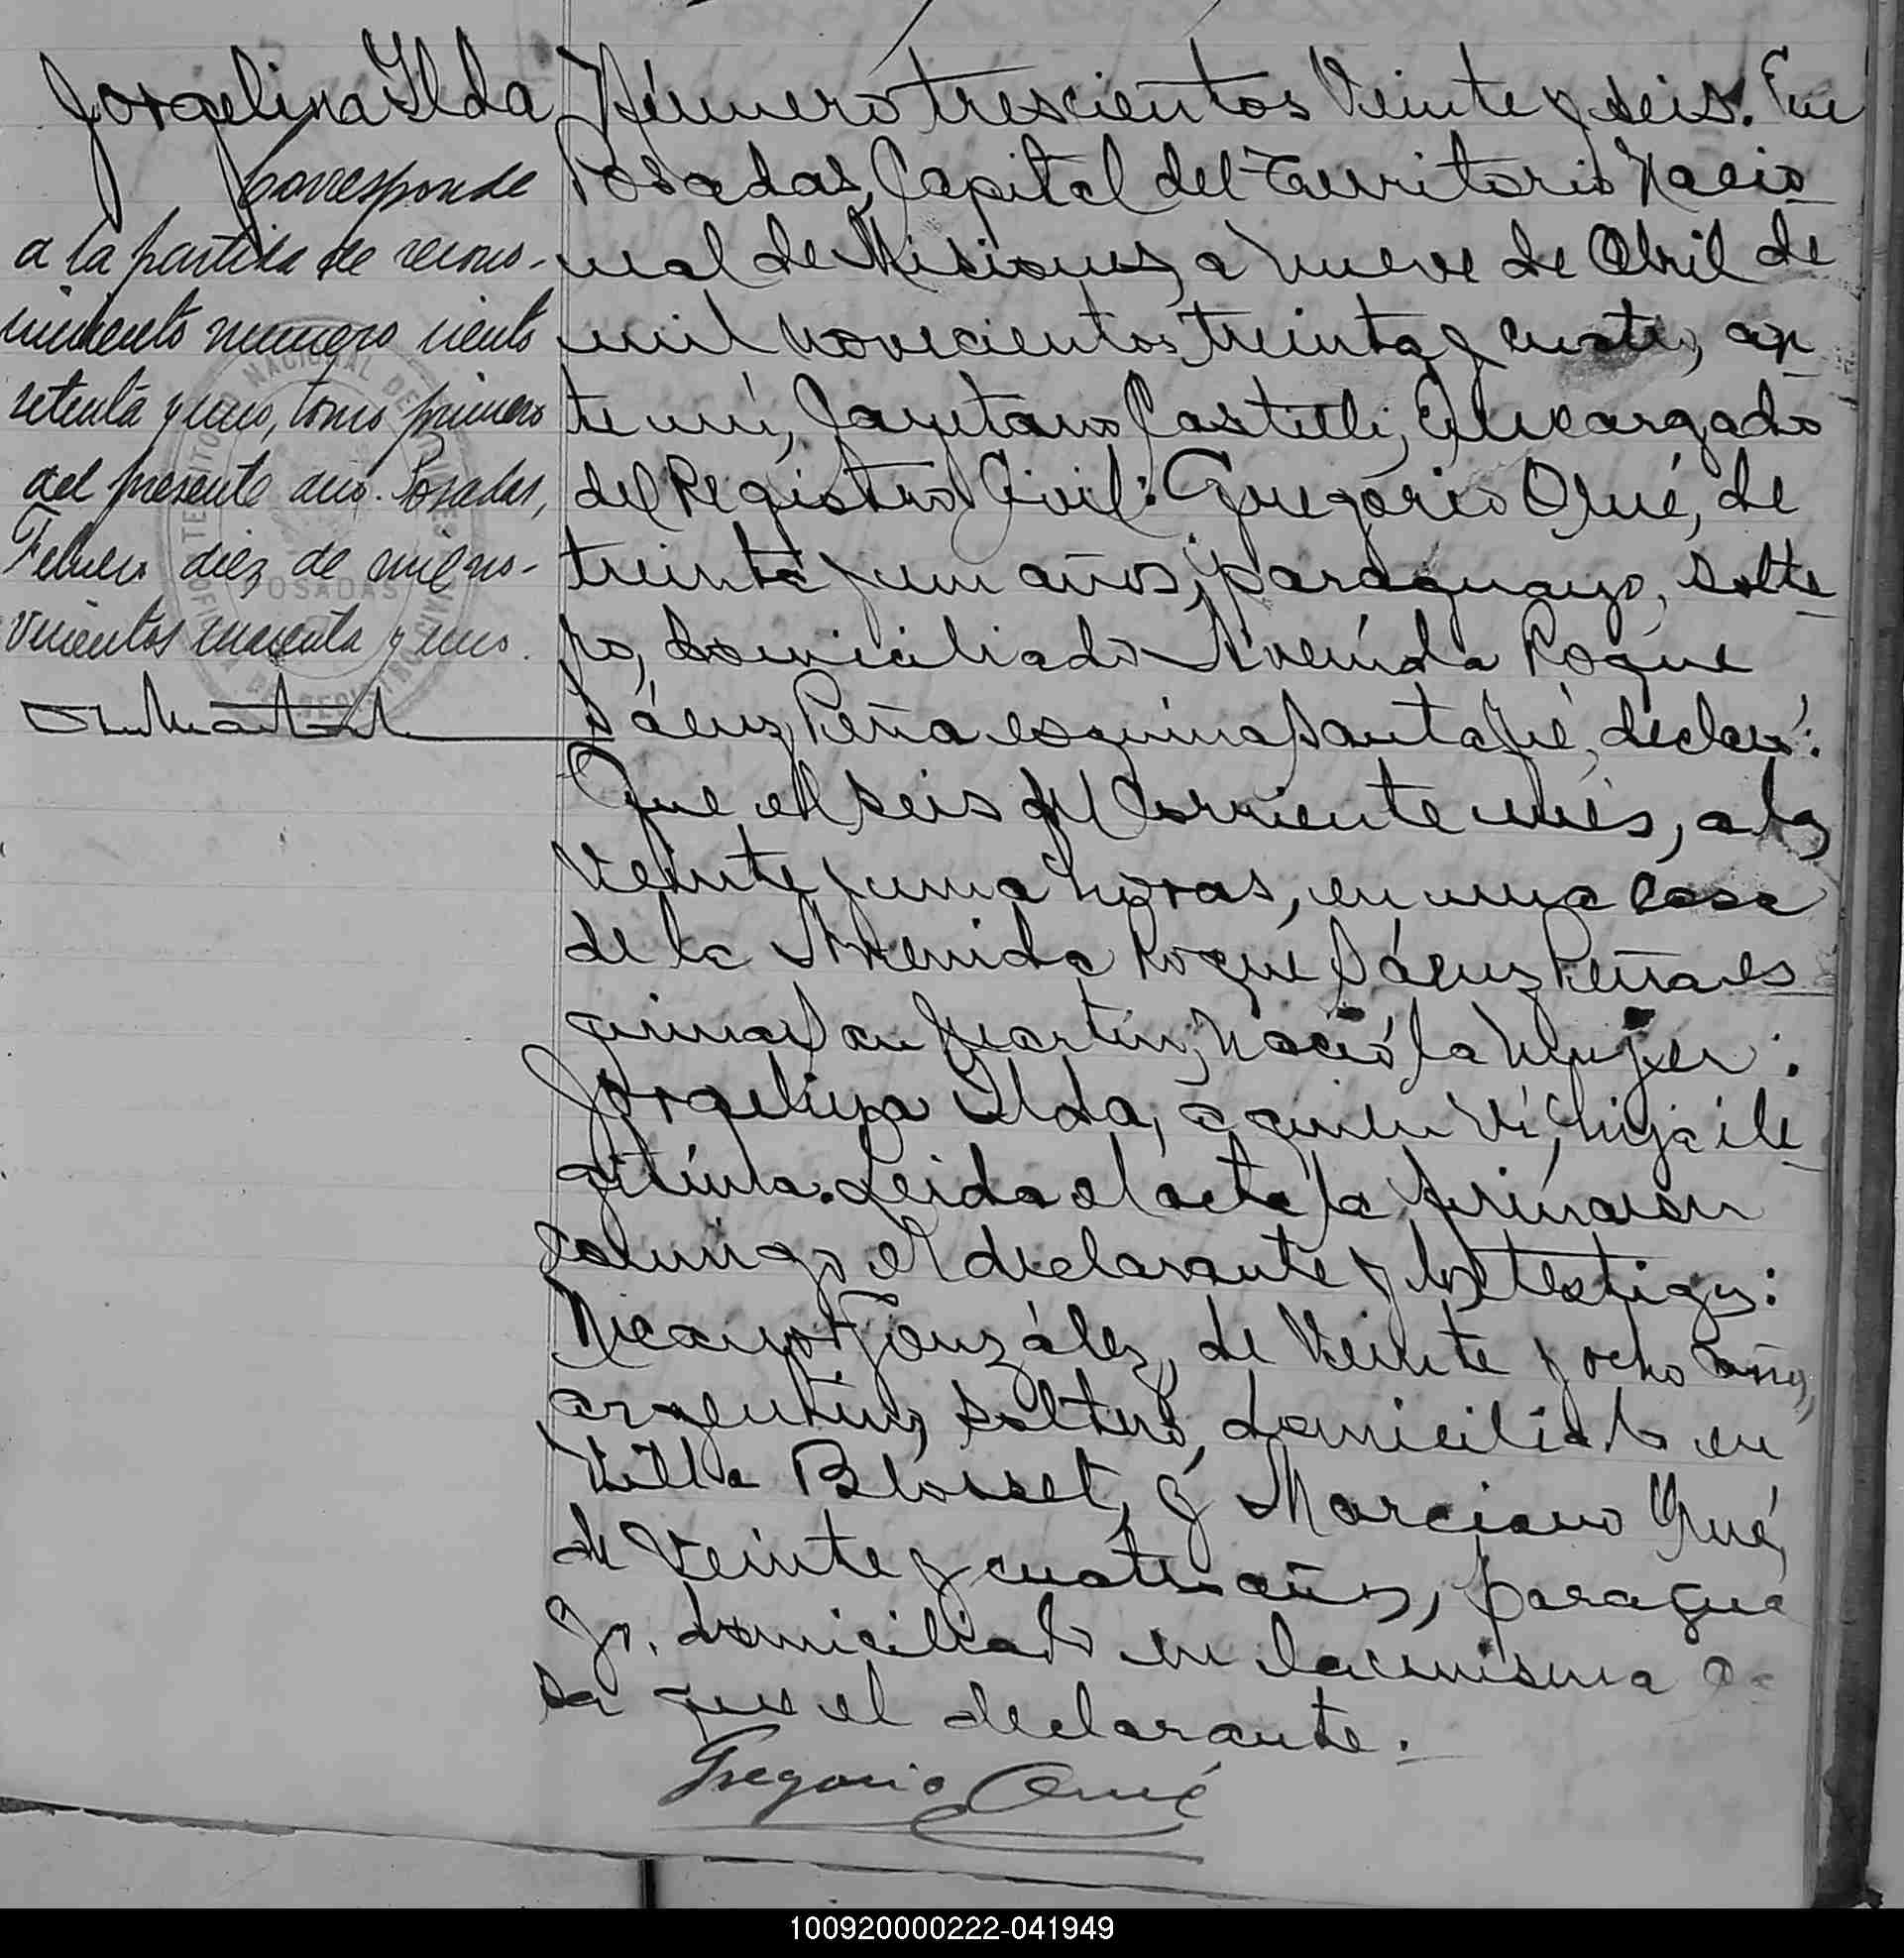 Jorgelina Ilda
Corresponde
a la partida de recono-
cimiento numero ciento
setenta y uno, tomo primero
del presente año. Posadas,
Febrero diez de mil no-
vecientos cuarenta y uno.
Número trescientos veinte y seis. En
Posadas, Capital del Territorio Nacio-
nal de Misiones, a nueve de Abril de
mil novecientos treinta y cuatro, an-
te mí, Cayetano Castelli, Encargado
del Registro Civil: Gregorio Orué, de
treinta y un años, paraguayo, solte-
ro, domiciliado Avenida Roque
Sáenz Peña esquina Santa Fé, declaró:
Que el seis del corriente mes, a las
veinte y una horas, en una casa
de la Avenida Roque Sáenz Peña es
quina San Martín, nació la mujer:
Jorgelina Ilda, a quien ví, hija ile-
gitima. Leida el acta la firmaron
conmigo el declarante y los testigos:
Nicanor González, de veinte y ocho años,
argentino, soltero, domiciliado en
Villa Blosset, y Marciano Orué,
de veinte y cuatro años, paragua
yo, domiciliado en la misma ca
sa que el declarante.
Gregorio Orué
TERRITORIO NACIONAL DE MISIONES
POSADAS
OFICINA DEL REGISTRO CIVIL
100920000222-041949